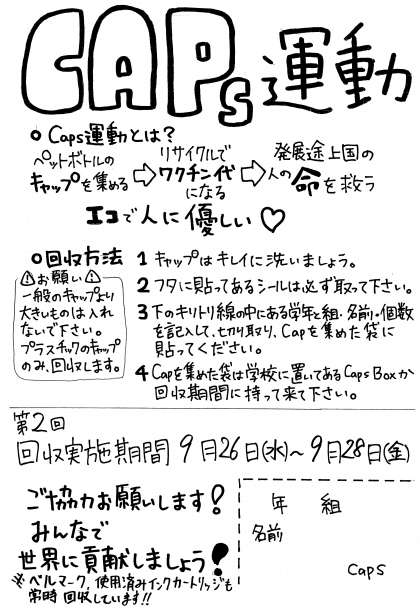 CAPs運動
○ Caps運動とは?
ペットボトルの
キャップを集める
⇨
リサイクルで
ワクチン代
になる
⇨
発展途上国の
人の命を救う
エコで人に優しい♡
○回収方法
⚠お願い⚠
一般のキャップより
大きものは入れ
ないで下さい。
プラスチックのキャップ
のみ、回収します。
1 キャップはキレイに洗いましょう。
2 フタに貼ってあるシールは必ず取って下さい。
3 下のキリトリ線の中にある学年と組・名前・個数
を記入して、切り取り、Capを集めた袋に
貼ってください。
4 Capを集めた袋は学校に置いてあるCaps Boxか
回収期間に持って来て下さい。
第2回
回収実施期間 9月26日(水)~9月28日(金)
ご協力お願いします!
みんなで
世界に貢献しましょう!
※ベルマーク、使用済みインクカートリッジも
常時回収しています!!
年 組
名前
Caps